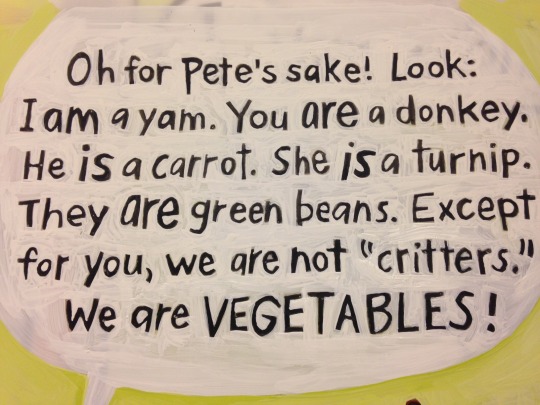 Oh for Pete's sake! Look:
I am a yam. You are a donkey.
He is a carrot. She is a turnip.
They are green beans. Except
for you, we are not "critters."
We are VEGETABLES!